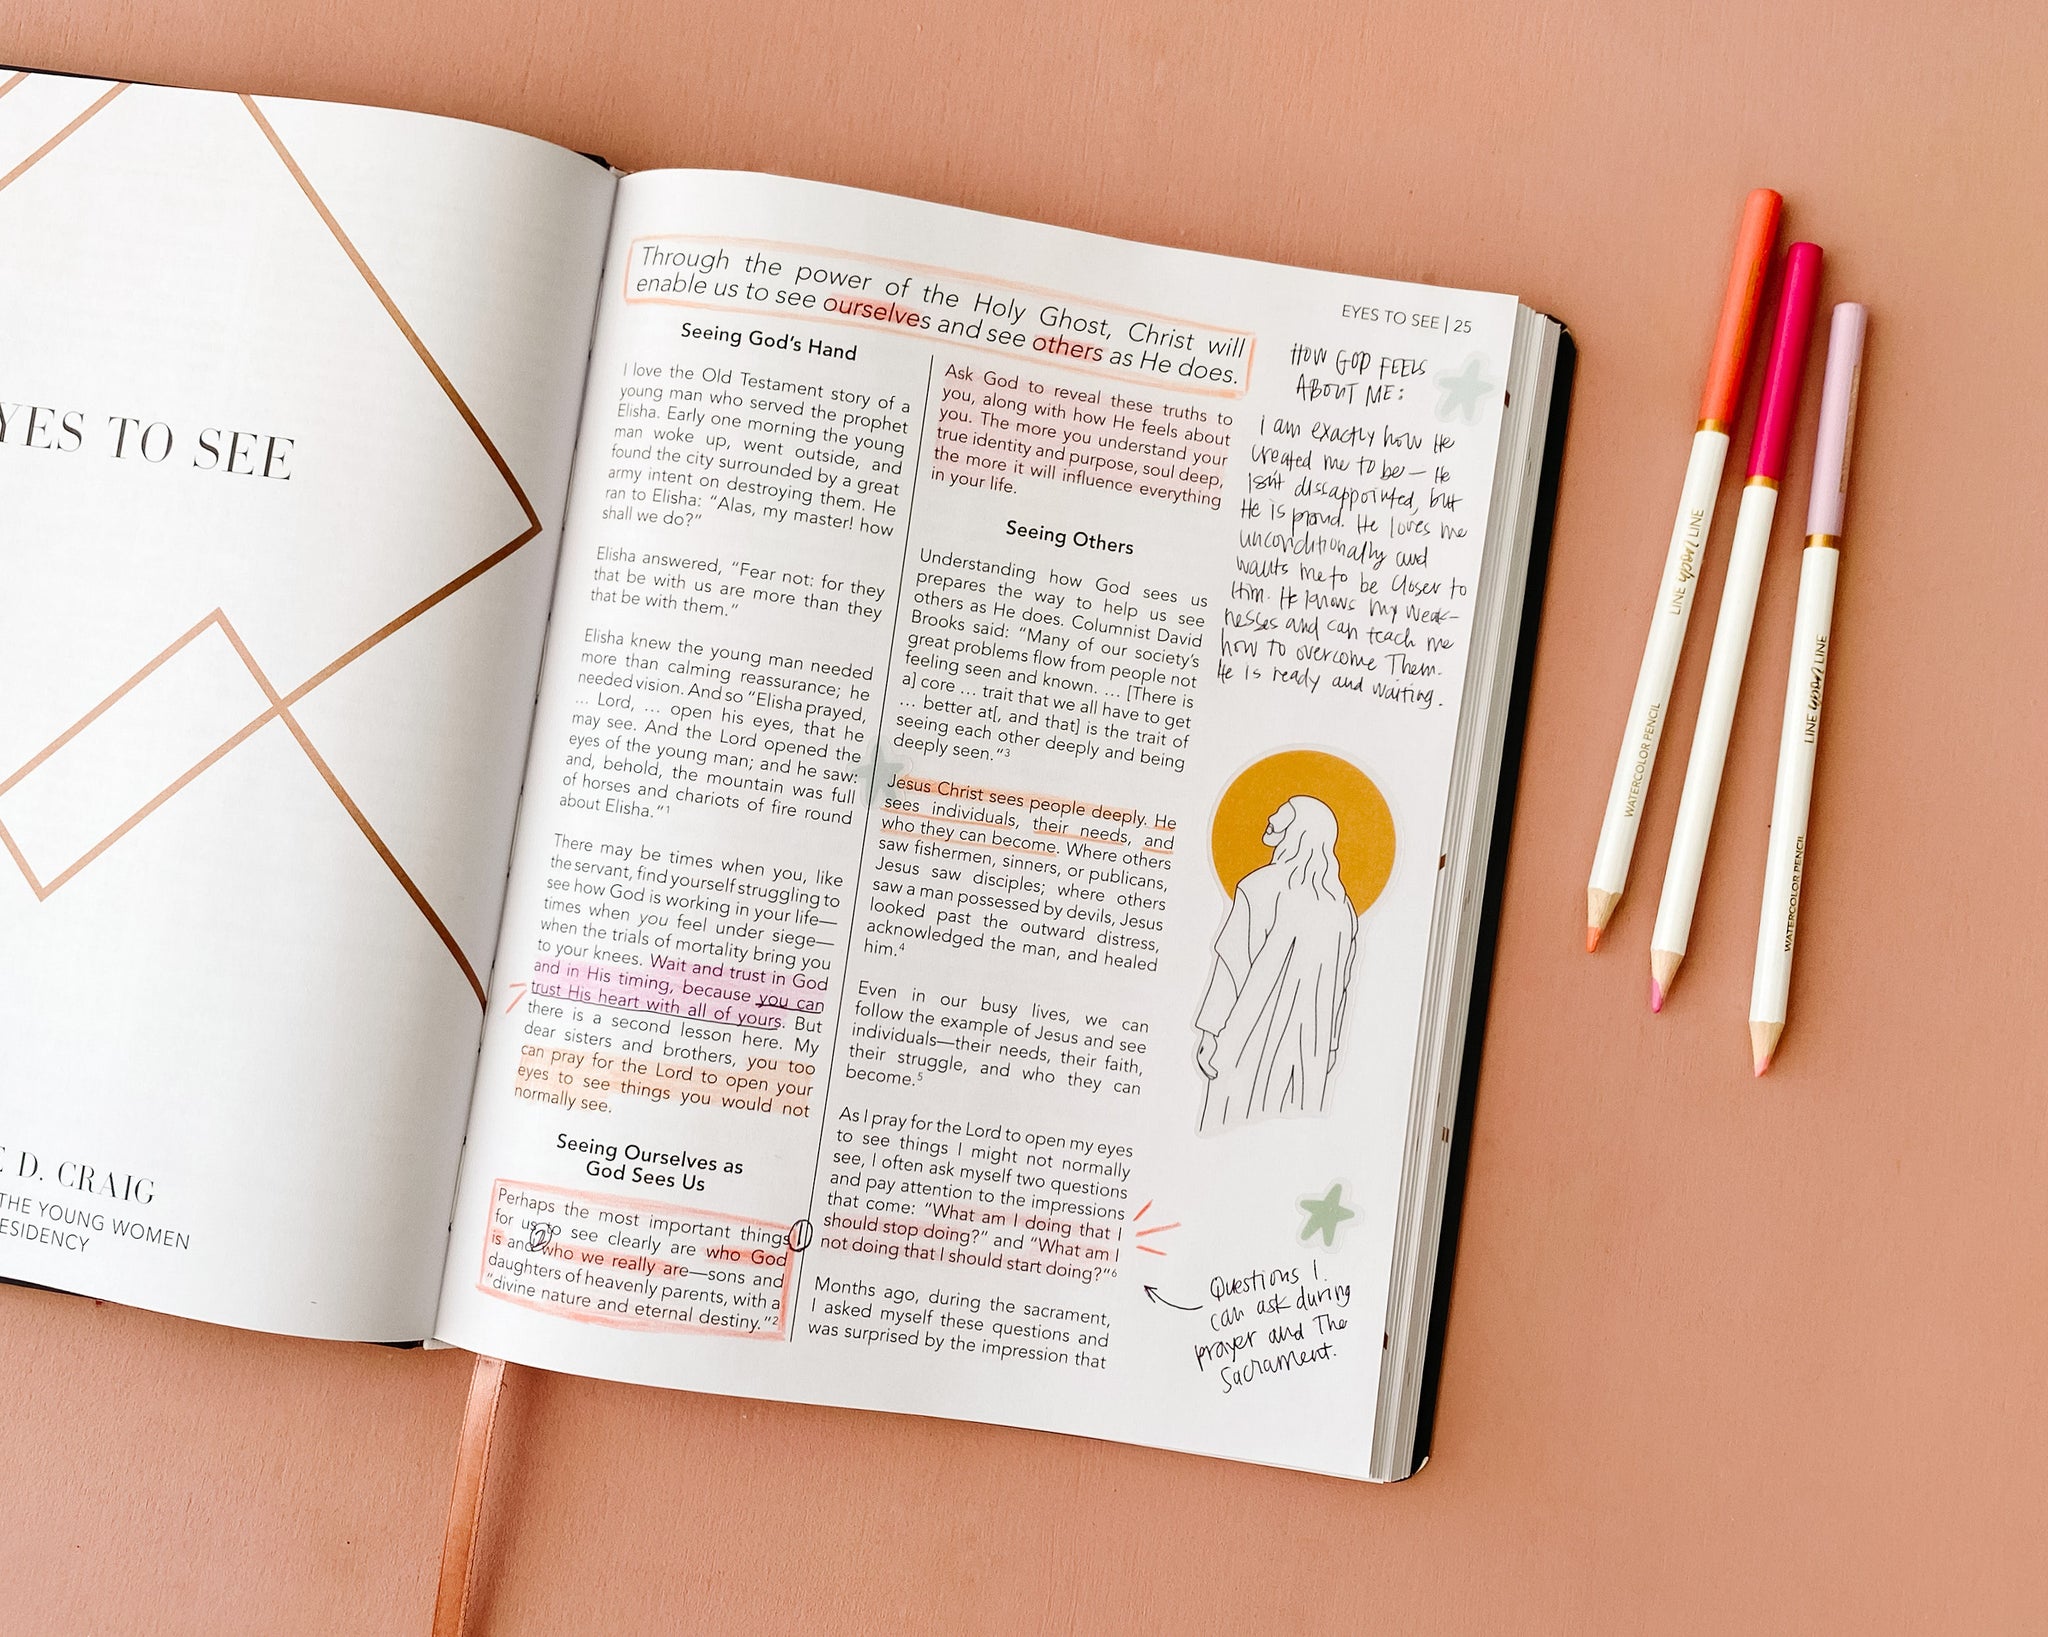 YES TO SEE
D. CRAIG
THE YOUNG WOMEN
ESIDENCY
EYES TO SEE | 25
Through the power of the Holy Ghost, Christ will
enable us to see ourselves and see others as He does.
Seeing God's Hand
I love the Old Testament story of a
young man who served the prophet
Elisha. Early one morning the young
man woke up, went outside, and
found the city surrounded by a great
army intent on destroying them. He
ran to Elisha: "Alas, my master! how
shall we do?"
Elisha answered, "Fear not: for they
that be with us are more than they
that be with them."
Elisha knew the young man needed
more than calming reassurance; he
needed vision. And so "Elisha prayed,
... Lord, ... open his eyes, that he
may see. And the Lord opened the
eyes of the young man; and he saw:
and, behold, the mountain was full
of horses and chariots of fire round
about Elisha."1
There may be times when you, like
the servant, find yourself struggling to
see how God is working in your life—
times when you feel under siege—
when the trials of mortality bring you
to your knees. Wait and trust in God
and in His timing, because you can
trust His heart with all of yours. But
there is a second lesson here. My
dear sisters and brothers, you too
can pray for the Lord to open your
eyes to see things you would not
normally see.
Seeing Ourselves as
God Sees Us
Perhaps the most important things
for us to see clearly are who God
is and who we really are—sons and
daughters of heavenly parents, with a
"divine nature and eternal destiny."2
1
2
Ask God to reveal these truths to
you, along with how He feels about
you. The more you understand your
true identity and purpose, soul deep,
the more it will influence everything
in your life.
Seeing Others
Understanding how God sees us
prepares the way to help us see
others as He does. Columnist David
Brooks said: "Many of our society's
great problems flow from people not
feeling seen and known. ... [There is
a] core ... trait that we all have to get
... better at[, and that] is the trait of
seeing each other deeply and being
deeply seen."3
Jesus Christ sees people deeply. He
sees individuals, their needs, and
who they can become. Where others
saw fishermen, sinners, or publicans,
Jesus saw disciples; where others
saw a man possessed by devils, Jesus
looked past the outward distress,
acknowledged the man, and healed
him.4
Even in our busy lives, we can
follow the example of Jesus and see
individuals—their needs, their faith,
their struggle, and who they can
become.5
As I pray for the Lord to open my eyes
to see things I might not normally
see, I often ask myself two questions
and pay attention to the impressions
that come: "What am I doing that I
should stop doing?" and "What am I
not doing that I should start doing?"6
Months ago, during the sacrament,
I asked myself these questions and
was surprised by the impression that
HOW GOD FEELS
ABOUT ME:
I am exactly how He
created me to be — He
isn't dissappointed, but
He is proud. He loves me
unconditionally and
wants me to be closer to
Him. He knows my weak-
nesses and can teach me
how to overcome Them.
He is ready and waiting.
Questions I
can ask during
prayer and The
Sacrament.
WATERCOLOR PENCIL LINE upon LINE
WATERCOLOR PENCIL LINE upon LINE